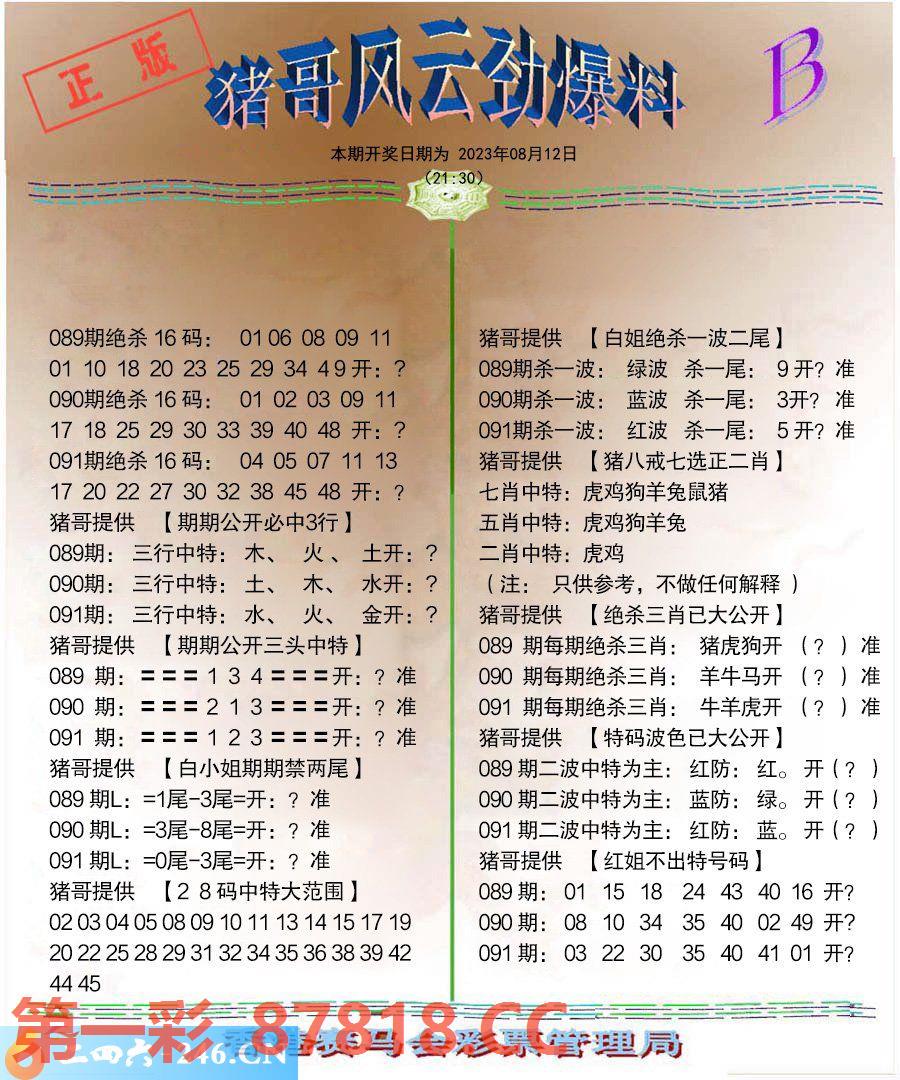 正版
猪哥风云劲爆料
B
本期开奖日期为 2023年08月12日
(21:30)
089期绝杀 16 码： 01 06 08 09 11
01 10 18 20 23 25 29 34 4 9 开：?
090期绝杀 16 码： 01 02 03 09 11
17 18 25 29 30 33 39 40 48 开：?
091期绝杀 16 码： 04 05 07 11 13
17 20 22 27 30 32 38 45 48 开：?
猪哥提供 【期期公开必中3行】
089期： 三行中特： 木、 火 、 土开：?
090期： 三行中特： 土、 木、 水开：?
091期： 三行中特： 水、 火、 金开：?
猪哥提供 【期期公开三头中特】
089 期：=== 1 3 4 ===开：? 准
090 期：=== 2 1 3 ===开：? 准
091 期：=== 1 2 3 ===开：? 准
猪哥提供 【白小姐期期禁两尾】
089 期L：=1尾-3尾=开：? 准
090 期L：=3尾-8尾=开：? 准
091 期L：=0尾-3尾=开：? 准
猪哥提供 【2 8 码中特大范围】
02 03 04 05 08 09 10 11 13 14 15 17 19
20 22 25 28 29 31 32 34 35 36 38 39 42
44 45
猪哥提供 【白姐绝杀一波二尾】
089期杀一波： 绿波 杀一尾： 9 开? 准
090期杀一波： 蓝波 杀一尾： 3开? 准
091期杀一波： 红波 杀一尾： 5 开? 准
猪哥提供 【猪八戒七选正二肖】
七肖中特：虎鸡狗羊兔鼠猪
五肖中特：虎鸡狗羊兔
二肖中特：虎鸡
（注： 只供参考，不做任何解释 ）
猪哥提供 【绝杀三肖已大公开】
089 期每期绝杀三肖： 猪虎狗开 （? ）准
090 期每期绝杀三肖： 羊牛马开 （? ）准
091 期每期绝杀三肖： 牛羊虎开 （? ）准
猪哥提供 【特码波色已大公开】
089 期二波中特为主：红防：红。开（? ）
090 期二波中特为主：蓝防：绿。开（? ）
091 期二波中特为主：红防：蓝。开（? ）
猪哥提供 【红姐不出特号码】
089 期： 01 15 18 24 43 40 16 开?
090 期： 08 10 34 35 40 02 49 开?
091 期： 03 22 30 35 40 41 01 开?
第一彩 87818.CC
二四六 246.CN
香港赛马会彩票管理局